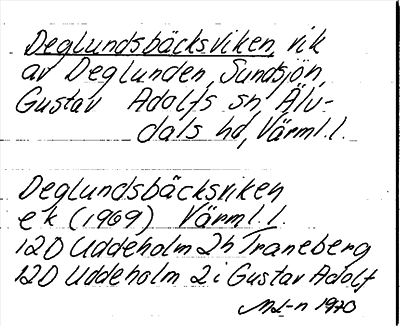 Deglundsbäcksviken, vik
av Deglunden, Sundsjön,
Gustav Adolfs sn, Älv-
dals hd, Värml.l.
Deglundsbäcksviken
ek (1969) Värml.l.
12D Uddeholm 2h Traneberg
12D Uddeholm 2i Gustav Adolf
1970